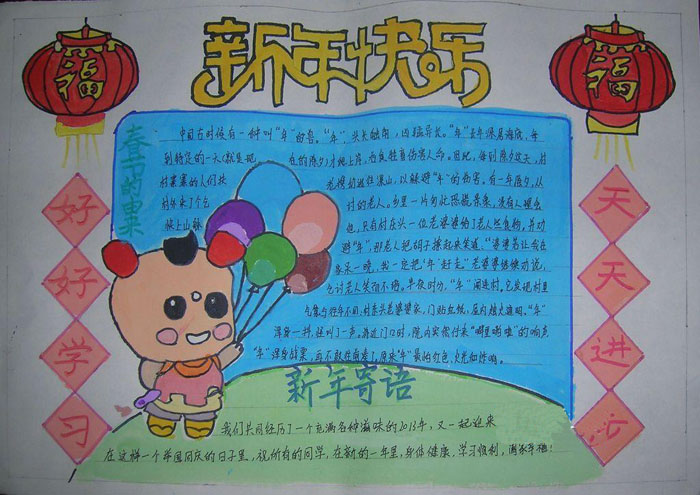 新年快乐
福
福
春节的由来
中国古时候有一种叫"年"的兽。"年"头长触角,凶猛异长。"年"长年深居海底,每
到特定的一天(就是现在的除夕)才爬上岸,吞食牲畜伤害人命。因此,每到除夕这天,村
村寨寨的人们扶老携幼逃往深山,以躲避"年"的伤害。有一年除夕,从
村外来了个乞讨的老人。乡里一片匆忙恐慌景象,没有人理会
他,只有村东头一位老婆婆给了老人些食物,并劝
他上山躲避"年",那老人把胡子撩起来笑道:"婆婆若让我在
家呆一晚,我一定把"年"赶走。"老婆婆继续劝说,
乞讨老人笑而不语。半夜时分,"年"闯进村,它发现村里
气象与往年不同,村东头老婆婆家,门贴红纸,屋内烛火通明。"年"
浑身一抖,怪叫了一声。将近门口时,院内突然传来"噼里啪啦"的响声
"年"浑身战栗,再不敢往前凑了,原来"年"最怕红色,火光和炸响。
好好学习
天天进步
新年寄语
我们共同经历了一个充满各种滋味的2013年,又一起迎来
在这样一个举国同庆的日子里,祝所有的同学,在新的一年里,身体健康,学习顺利,阖家幸福!